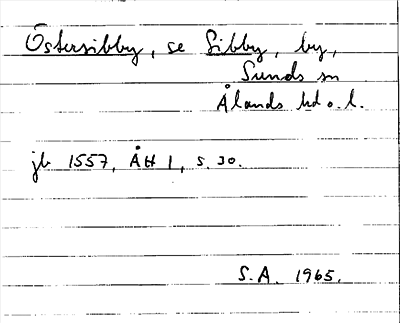 Östersibby, se Sibby, by,
Sunds sn
Ålands hd o. l.
jb 1557, ÅH 1, s. 30.
S.A. 1965.